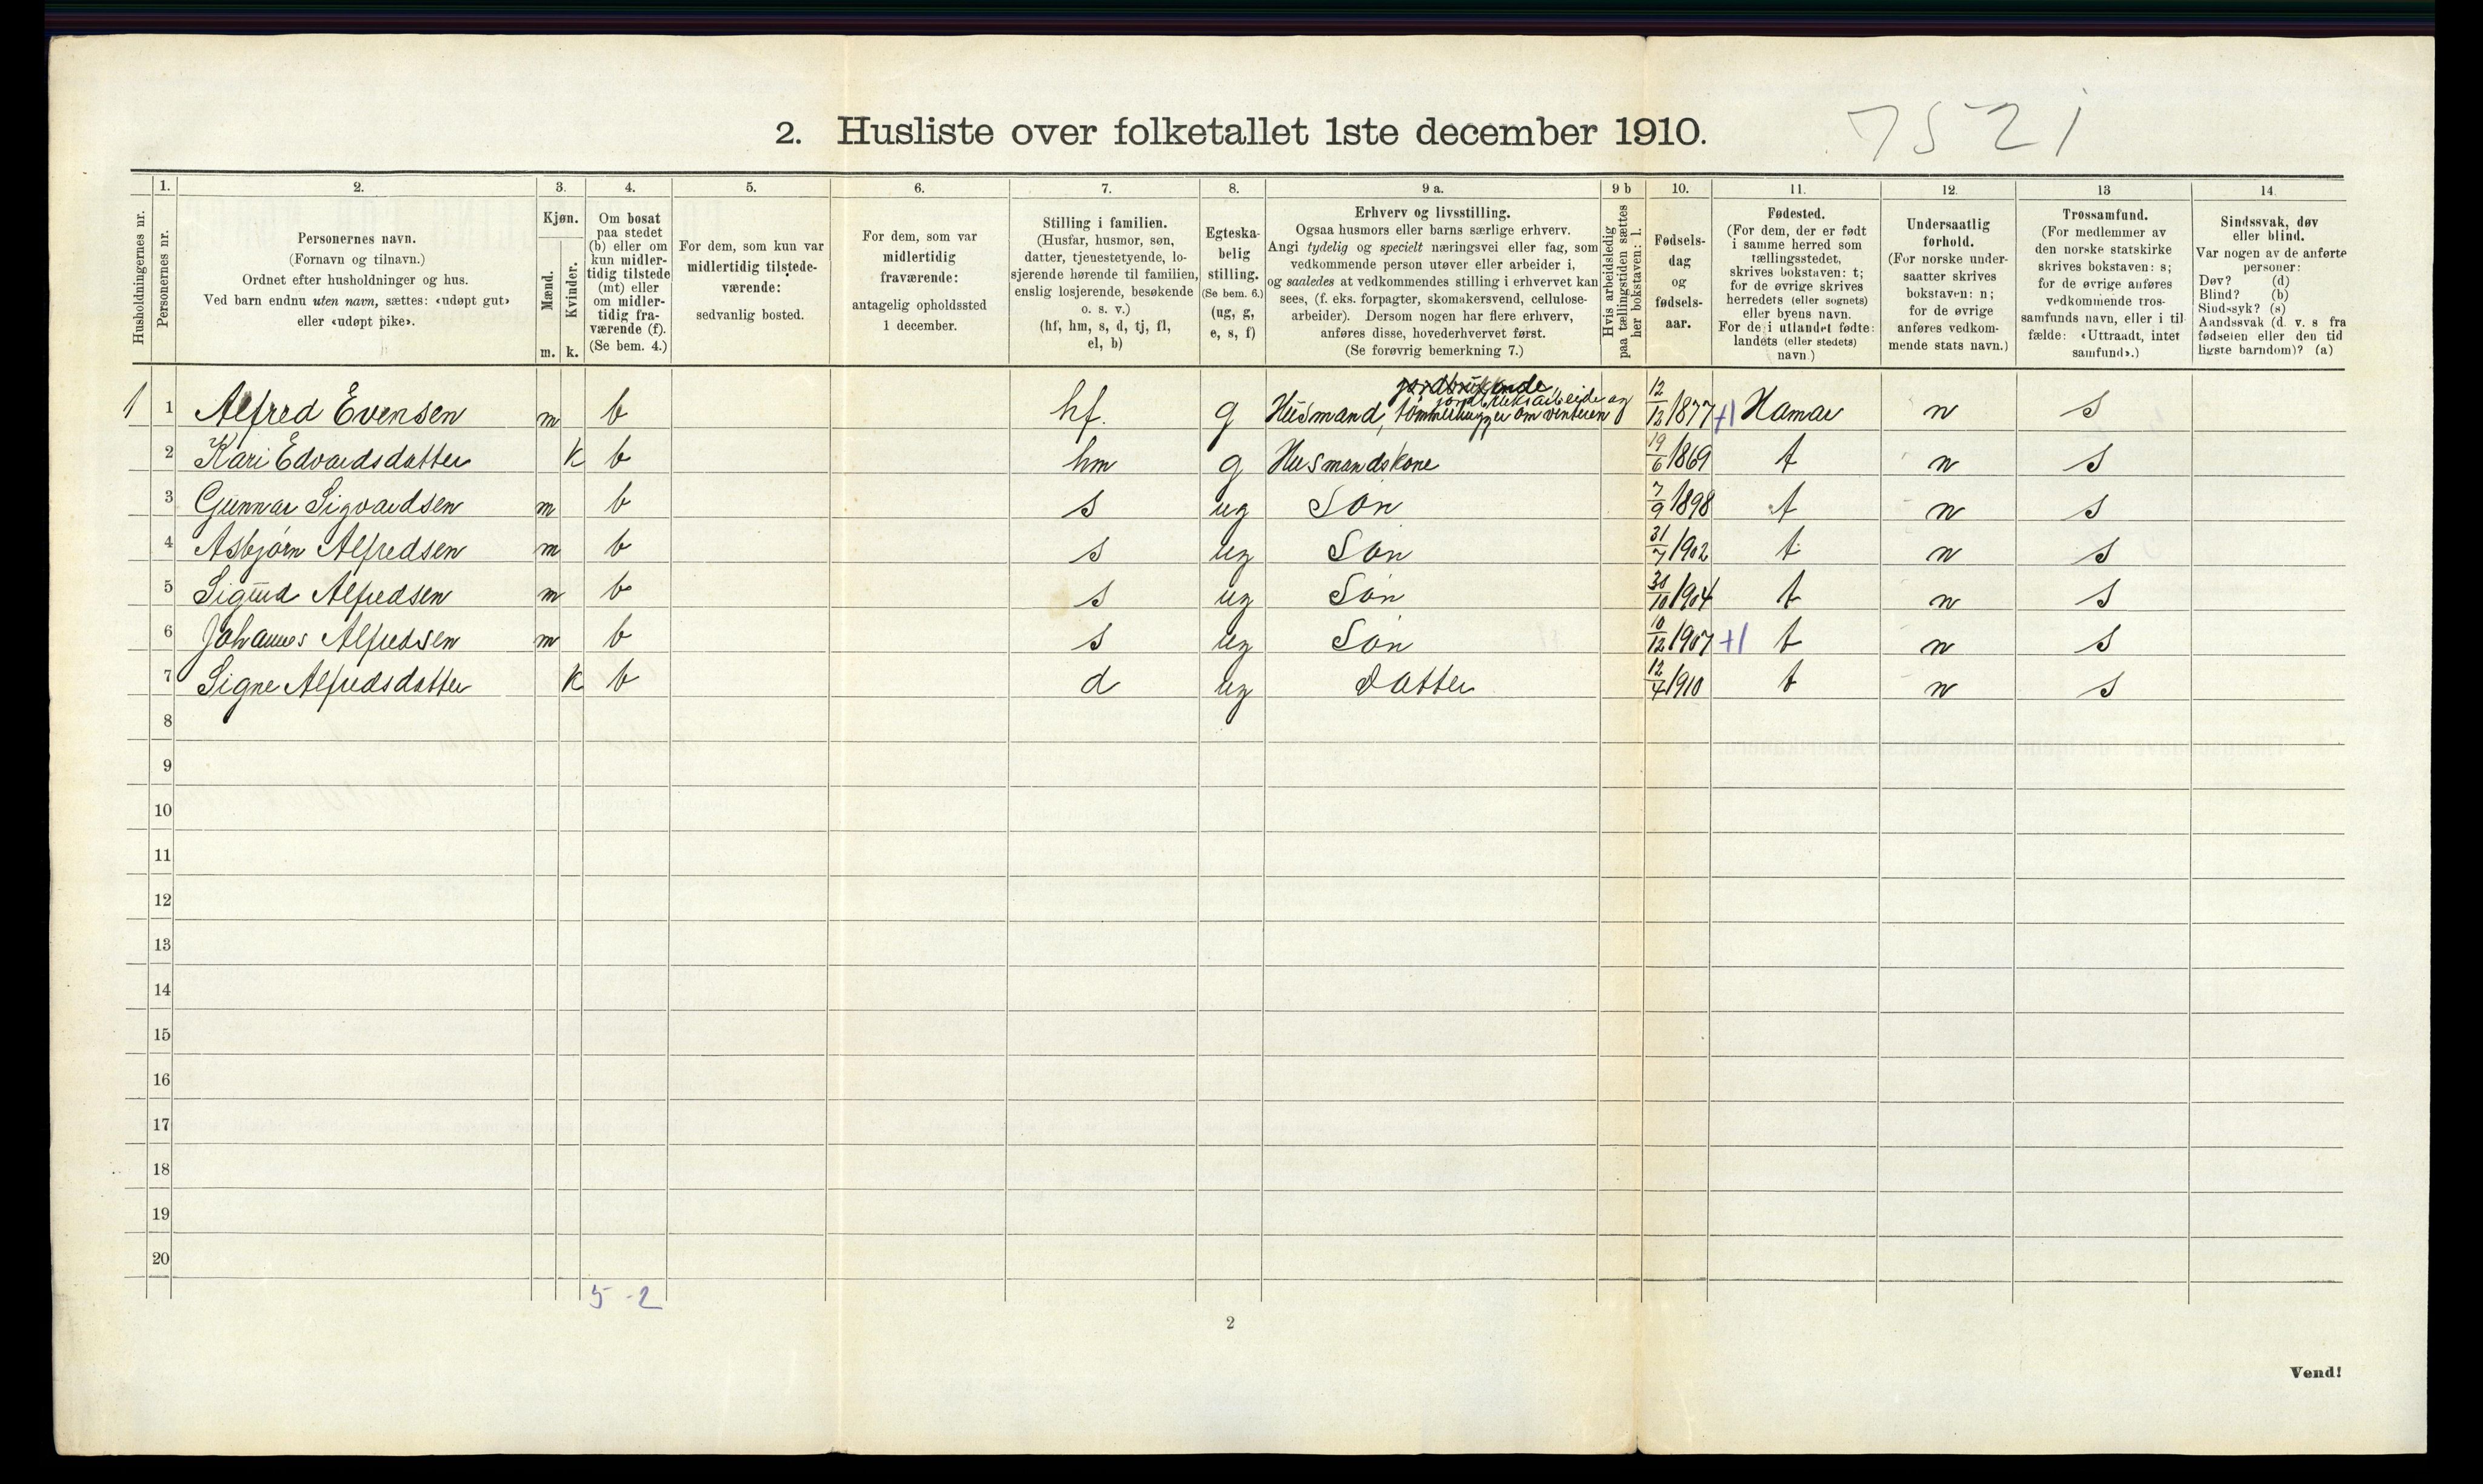 2. Husliste over folketallet 1ste december 1910.
7521
Husholdningernes nr.
1.
Personernes nr.
2.
Personernes navn.
(Fornavn og tilnavn.)
Ordnet efter husholdninger og hus.
Ved barn endnu uten navn, sættes: «udøpt gut»
eller «udøpt pike».
3.
Kjøn.
Mænd.
Kvinder.
m. k.
4.
Om bosat
paa stedet
(b) eller om
kun midler-
tidig tilstede
(mt) eller
om midler-
tidig fra-
værende (f).
(Se bem. 4.)
5.
For dem, som kun var
midlertidig tilstede-
værende:
sedvanlig bosted.
6.
For dem, som var
midlertidig
fraværende:
antagelig opholdssted
1 december.
7.
Stilling i familien.
(Husfar, husmor, søn,
datter, tjenestetyende, lo-
sjerende hørende til familien,
enslig losjerende, besøkende
o. s. v.)
(hf, hm, s, d, tj, fl,
el, b)
8.
Egteska-
belig
stilling.
(Se bem. 6.)
(ug, g,
e, s, f)
9 a.
Erhverv og livsstilling.
Ogsaa husmors eller barns særlige erhverv.
Angi tydelig og specielt næringsvei eller fag, som
vedkommende person utøver eller arbeider i,
og saaledes at vedkommendes stilling i erhvervet kan
sees, (f. eks. forpagter, skomakersvend, cellulose-
arbeider). Dersom nogen har flere erhverv,
anføres disse, hovederhvervet først.
(Se forøvrig bemerkning 7.)
9 b
Hvis arbeidsledig
paa tællingstiden sættes
her bokstaven: l.
10.
Fødsels-
dag
og
fødsels-
aar.
11.
Fødested.
(For dem, der er født
i samme herred som
tællingsstedet,
skrives bokstaven: t;
for de øvrige skrives
herredets (eller sognets)
eller byens navn.
For de i utlandet fødte:
landets (eller stedets)
navn.)
12.
Undersaatlig
forhold.
(For norske under-
saatter skrives
bokstaven: n;
for de øvrige
anføres vedkom-
mende stats navn.)
13
Trossamfund.
(For medlemmer av
den norske statskirke
skrives bokstaven: s;
for de øvrige anføres
vedkommende tros-
samfunds navn, eller i til-
fælde: «Uttraadt, intet
samfund».)
14
Sindssvak, døv
eller blind.
Var nogen av de anførte
personer:
Døv? (d)
Blind? (b)
Sindssyk? (s)
Aandssvak (d. v. s fra
fødselen eller den tid
ligste barndom)? (a)
jordbrukende
jordbruksarbeide og
1 1 Alfred Evensen m b hf. g Husmand, tömmerhugger om vinteren 12/12 1877 +1 Hamar n s
2 Kari Edvardsdatter k b hm g Husmandskone 19/6 1869 t n s
3 Gunnar Sigvardsen m b s ug Sön 7/9 1898 t n s
4 Asbjørn Alfredsen m b s ug Sön 31/7 1902 t n s
5 Sigurd Alfredsen m b s ug Sön 30/10 1904 t n s
6 Johannes Alfredsen m b s ug Sön 10/12 1907 +1 t n s
7 Signe Alfredsdatter k b d ug Datter 12/4 1910 t n s
8
9
10
11
12
13
14
15
16
17
18
19
20
5-2
2
Vend!